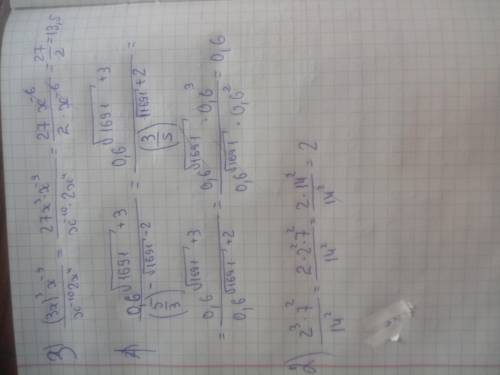 3) (3x)³x⁻⁹ / x⁻¹⁰2x⁴ = 27x³·x⁻⁹ / x⁻¹⁰·2x⁴ = 27x⁻⁶ / 2·x⁻⁶ = 27/2 = 13,5
1) 0,6^(√1691+3) / (5/3)^(-√1691-2) = 0,6^(√1691+3) / (3/5)^(√1691+2) =
= 0,6^(√1691+3) / 0,6^(√1691+2) = 0,6^√1691 · 0,6³ / 0,6^√1691 · 0,6² = 0,6
2) 2³·7² / 14² = 2·2²·7² / 14² = 2·14² / 14² = 2